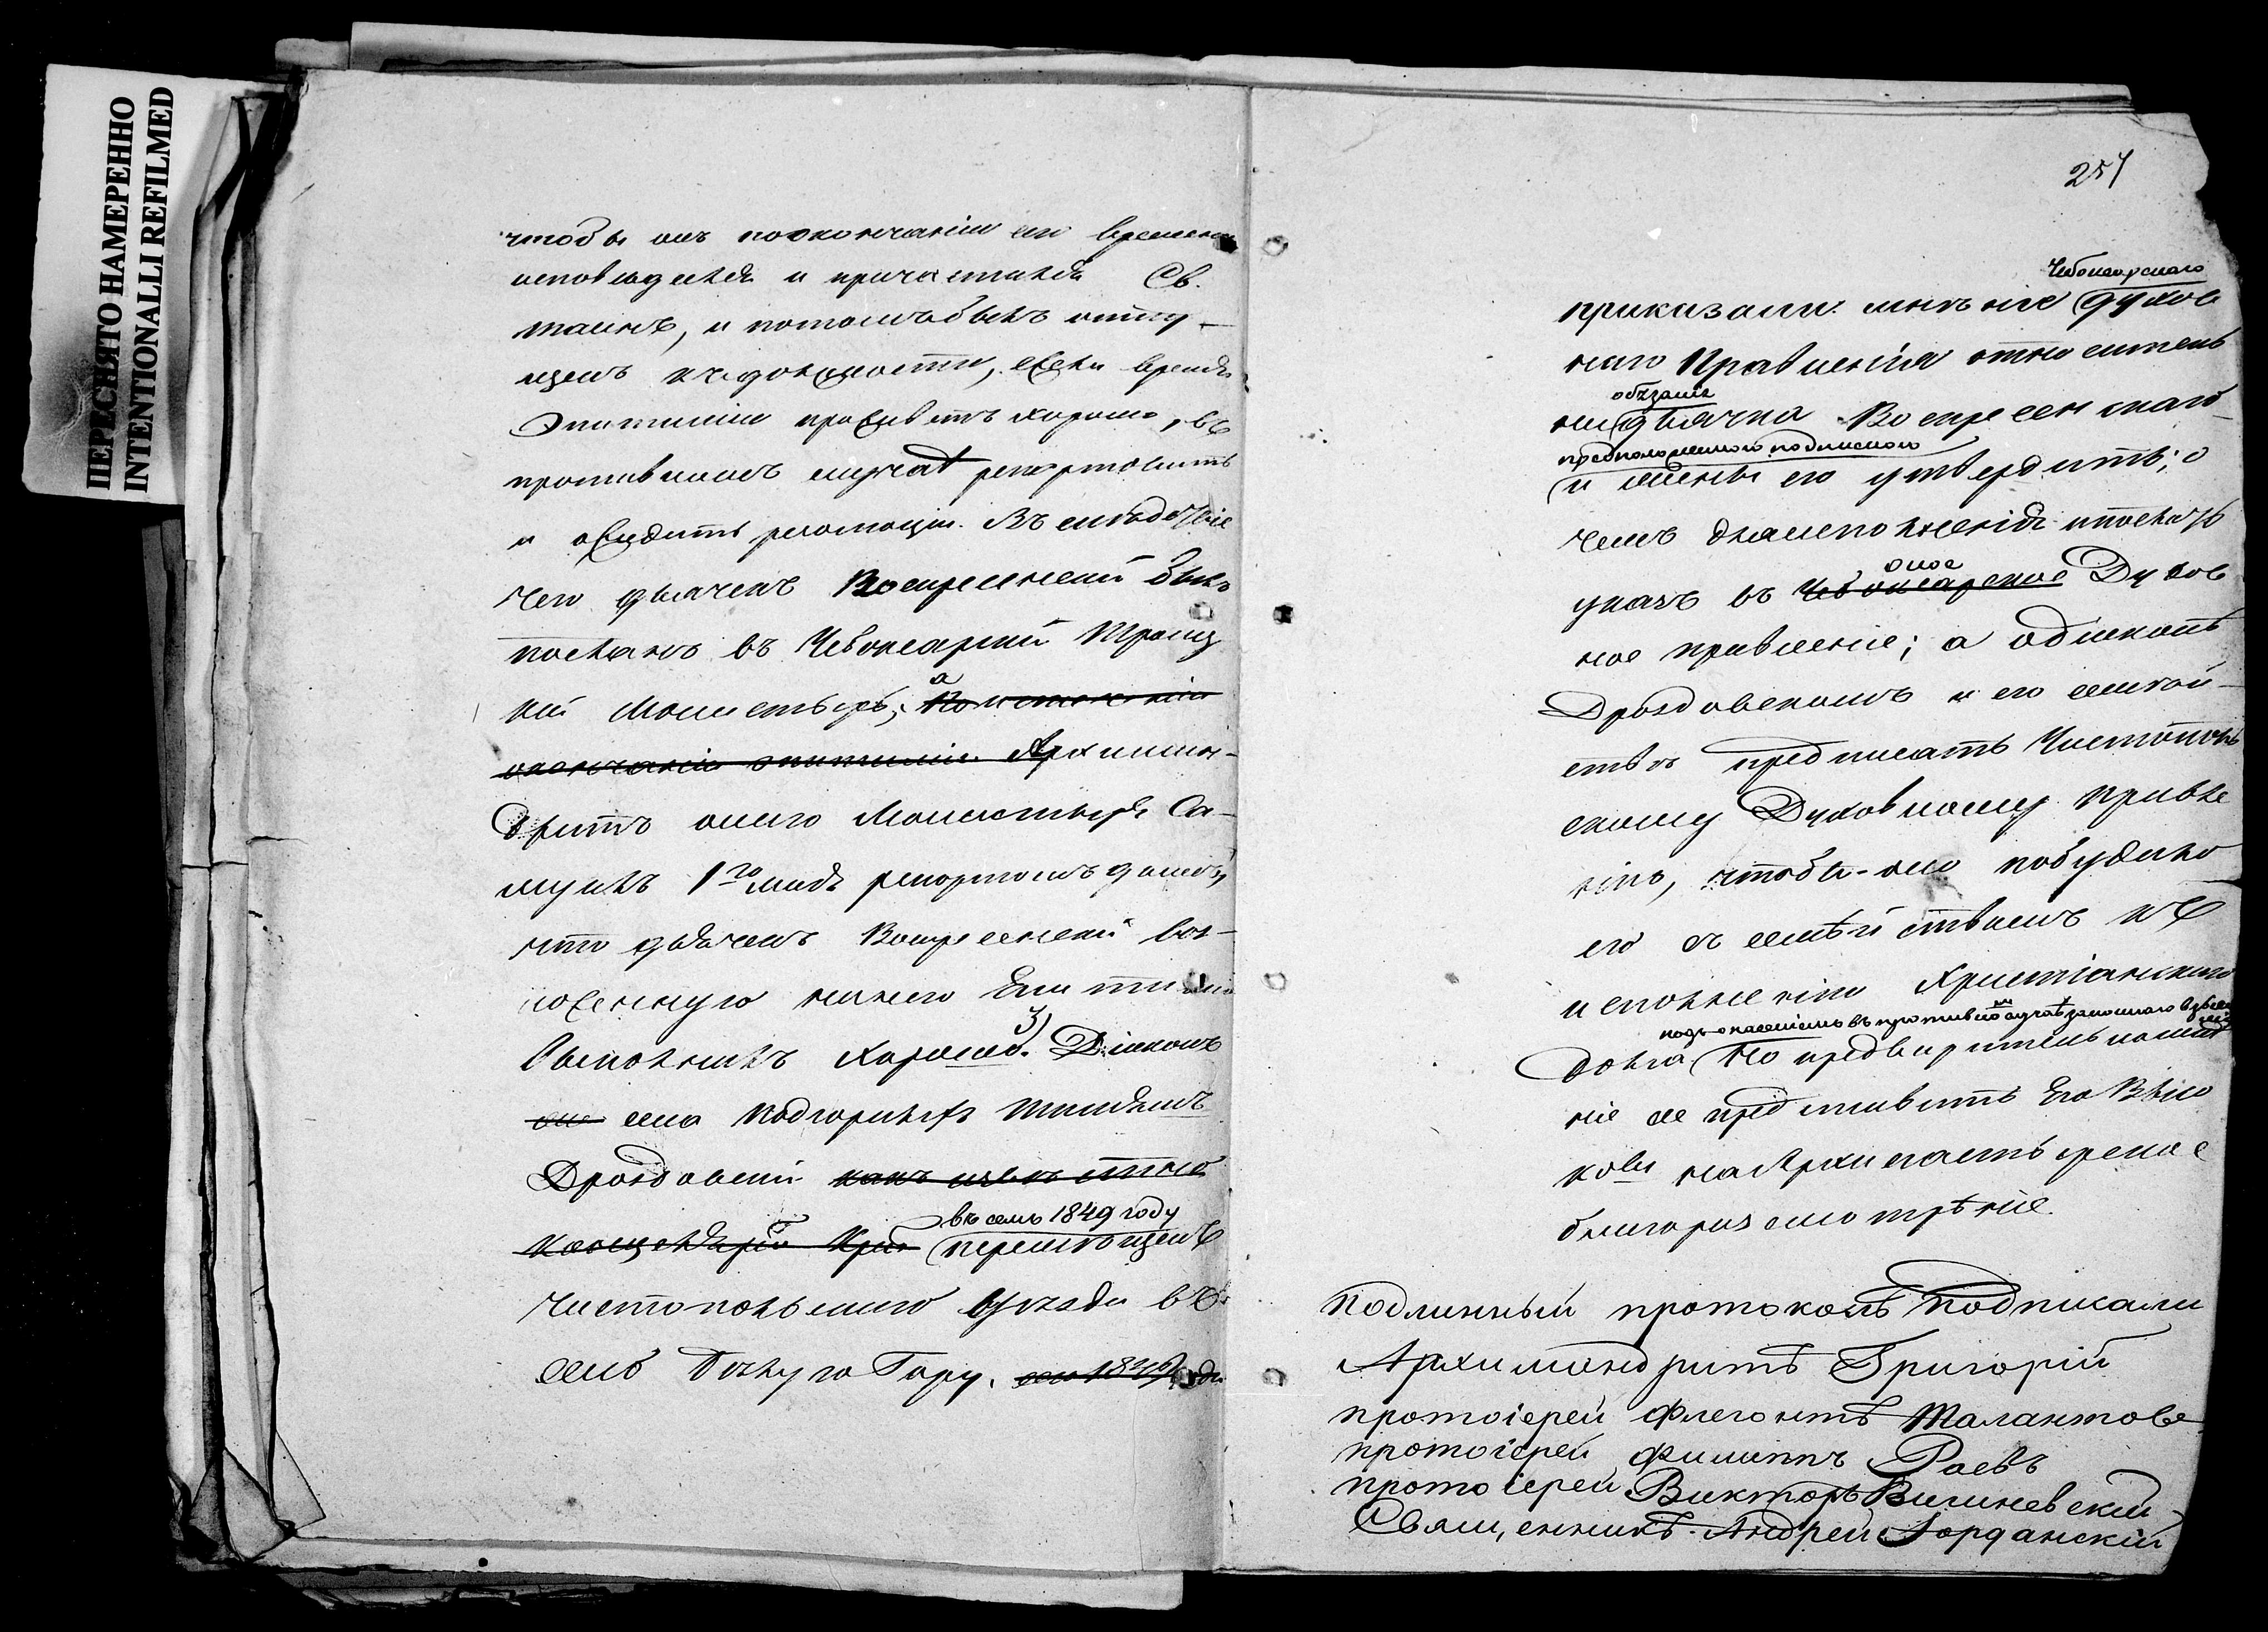 ПЕРЕСНЯТО НАМЕРЕННО
INTENTIONALLI REFILMED
чтобы онъ по окончаніи его времени
исповѣдался и причастился Св.
таинъ, и потомъ былъ отпу-
щенъ къ должности, если время
Эпитиміи проживетъ хорошо, въ
противномъ случаѣ репортовать
и ожидать резолюціи. Въ слѣдствіе
чего дьячекъ Воскресенскій былъ
посланъ въ Чебоксарскій Троиц
кій Монастырь, а По исполненіи
окончаніи эпитиміи Архиман-
дритъ онаго Монастыря Са-
муилъ 1го Мая репортомъ донесъ,
что дьячекъ Воскресенскій воз-
ложенную на него Епитимію
выполнилъ хорошо. 3) Діаконъ
села Подгорныхъ Тимяшъ
Дроздовскій какъ извѣстно
въ семъ 1849 году
перемѣщенъ
Чистопольскаго уѣзда въ
село Бѣлую Гору.
257
Чебоксарскаго
приказали: мнѣніе духов
наго Правленія относитель
но обязанія дьячка Воскресенскаго
предположенною подпискою
и жены его утвердить; о
чемъ для исполненія послать
указъ въ Чебоксарское оное Духов
ное правленіе; а о діаконѣ
Дроздовскомъ и его семей-
ствѣ предписать Чистополь
скому Духовному Правле
нію, чтобы оно побудило
его съ семействомъ къ
исполненію Христіанскаго
подъ опасеніемъ въ противномъ случаѣ законнаго взыска
нія
долга Но предварительно мнѣ
ніе се представить Его Высо
ков на Архипастырское
благоразсмотрѣніе.
Подлинный протоколъ подписали
Архимандритъ Григорій
протоіерей Флегонтъ Талантовъ
протоіерей Филиппъ Раевъ
протоіерей Викторъ Вишневскій
Священникъ Андрей Іорданскій